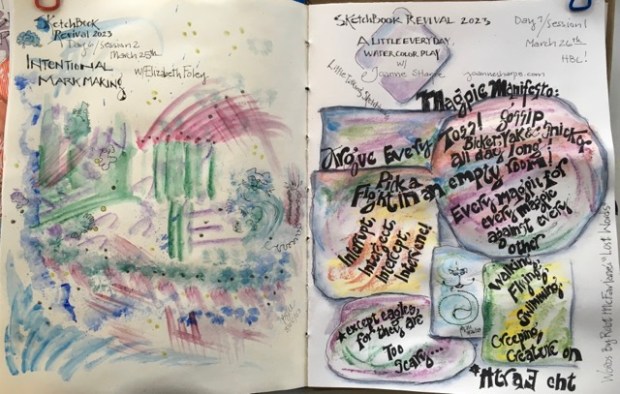 SketchBook
Revival 2023
Day 6/Session 2
March 25th
INTENTIONAL
MARK MAKING
w/Elizabeth Foley
SKETCHBOOK REVIVAL 2023
Day 7/Session 1
March 26th
HBC!
A LITTLE EVERYDAY
WATERCOLOR PLAY
w/
Joanne Sharpe
joannesharpe.com
Magpie Manifesto:
Argue Every
Toss! Gossip
Bicker Yak & Snicker
all day long!
Pick a
Fight In an empty room!
Interrupt,
Interject,
Intercept,
Intervene!
Every magpie for
every magpie
against every
other
Walking,
Flying,
Swimming,
Creeping,
Creature on
*Except eagles,
for they are
Too
Scary...
Words By Robt McFarlane "Lost Words"